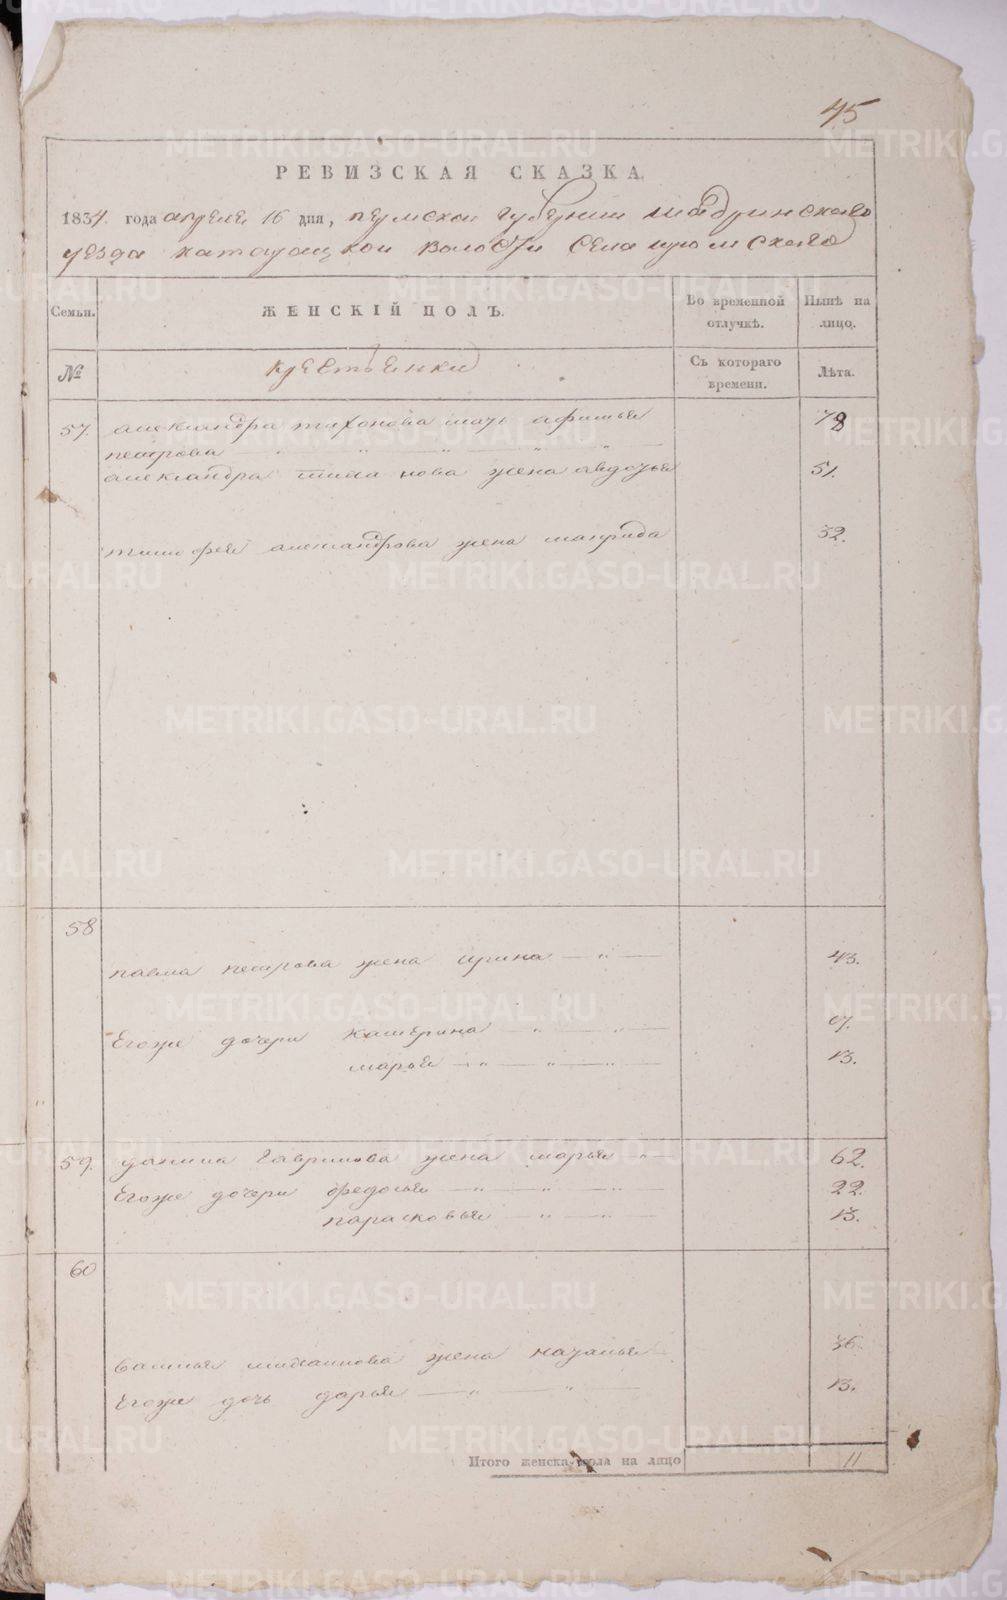 45
РЕВИЗСКАЯ СКАЗКА.
1834. года апреле 16 дня, пермской губернии шадринскаво
уезда катаицкой волости села
Семьи. ЖЕНСКІЙ ПОЛЪ. Во временной отлучкѣ. Нынѣ на лицо.
№ крестьенки Съ котораго времени. Лѣта.
57. александра тихонова мать афимья 78
петрова
александра тихонова жена авдотья 51.
тимофея александрова жена маврида 32.
58
павла петрова жена ирина 43.
Егоже дочери катерина 17.
марья 13.
59. данила гаврилова жена марья 62.
Егоже дочери федосья 22.
парасковья 13.
60
василья михаилова жена наталья 36.
Егоже дочь дарья 13.
Итого женска пола на лицо 11
METRIKI.GASO-URAL.RU